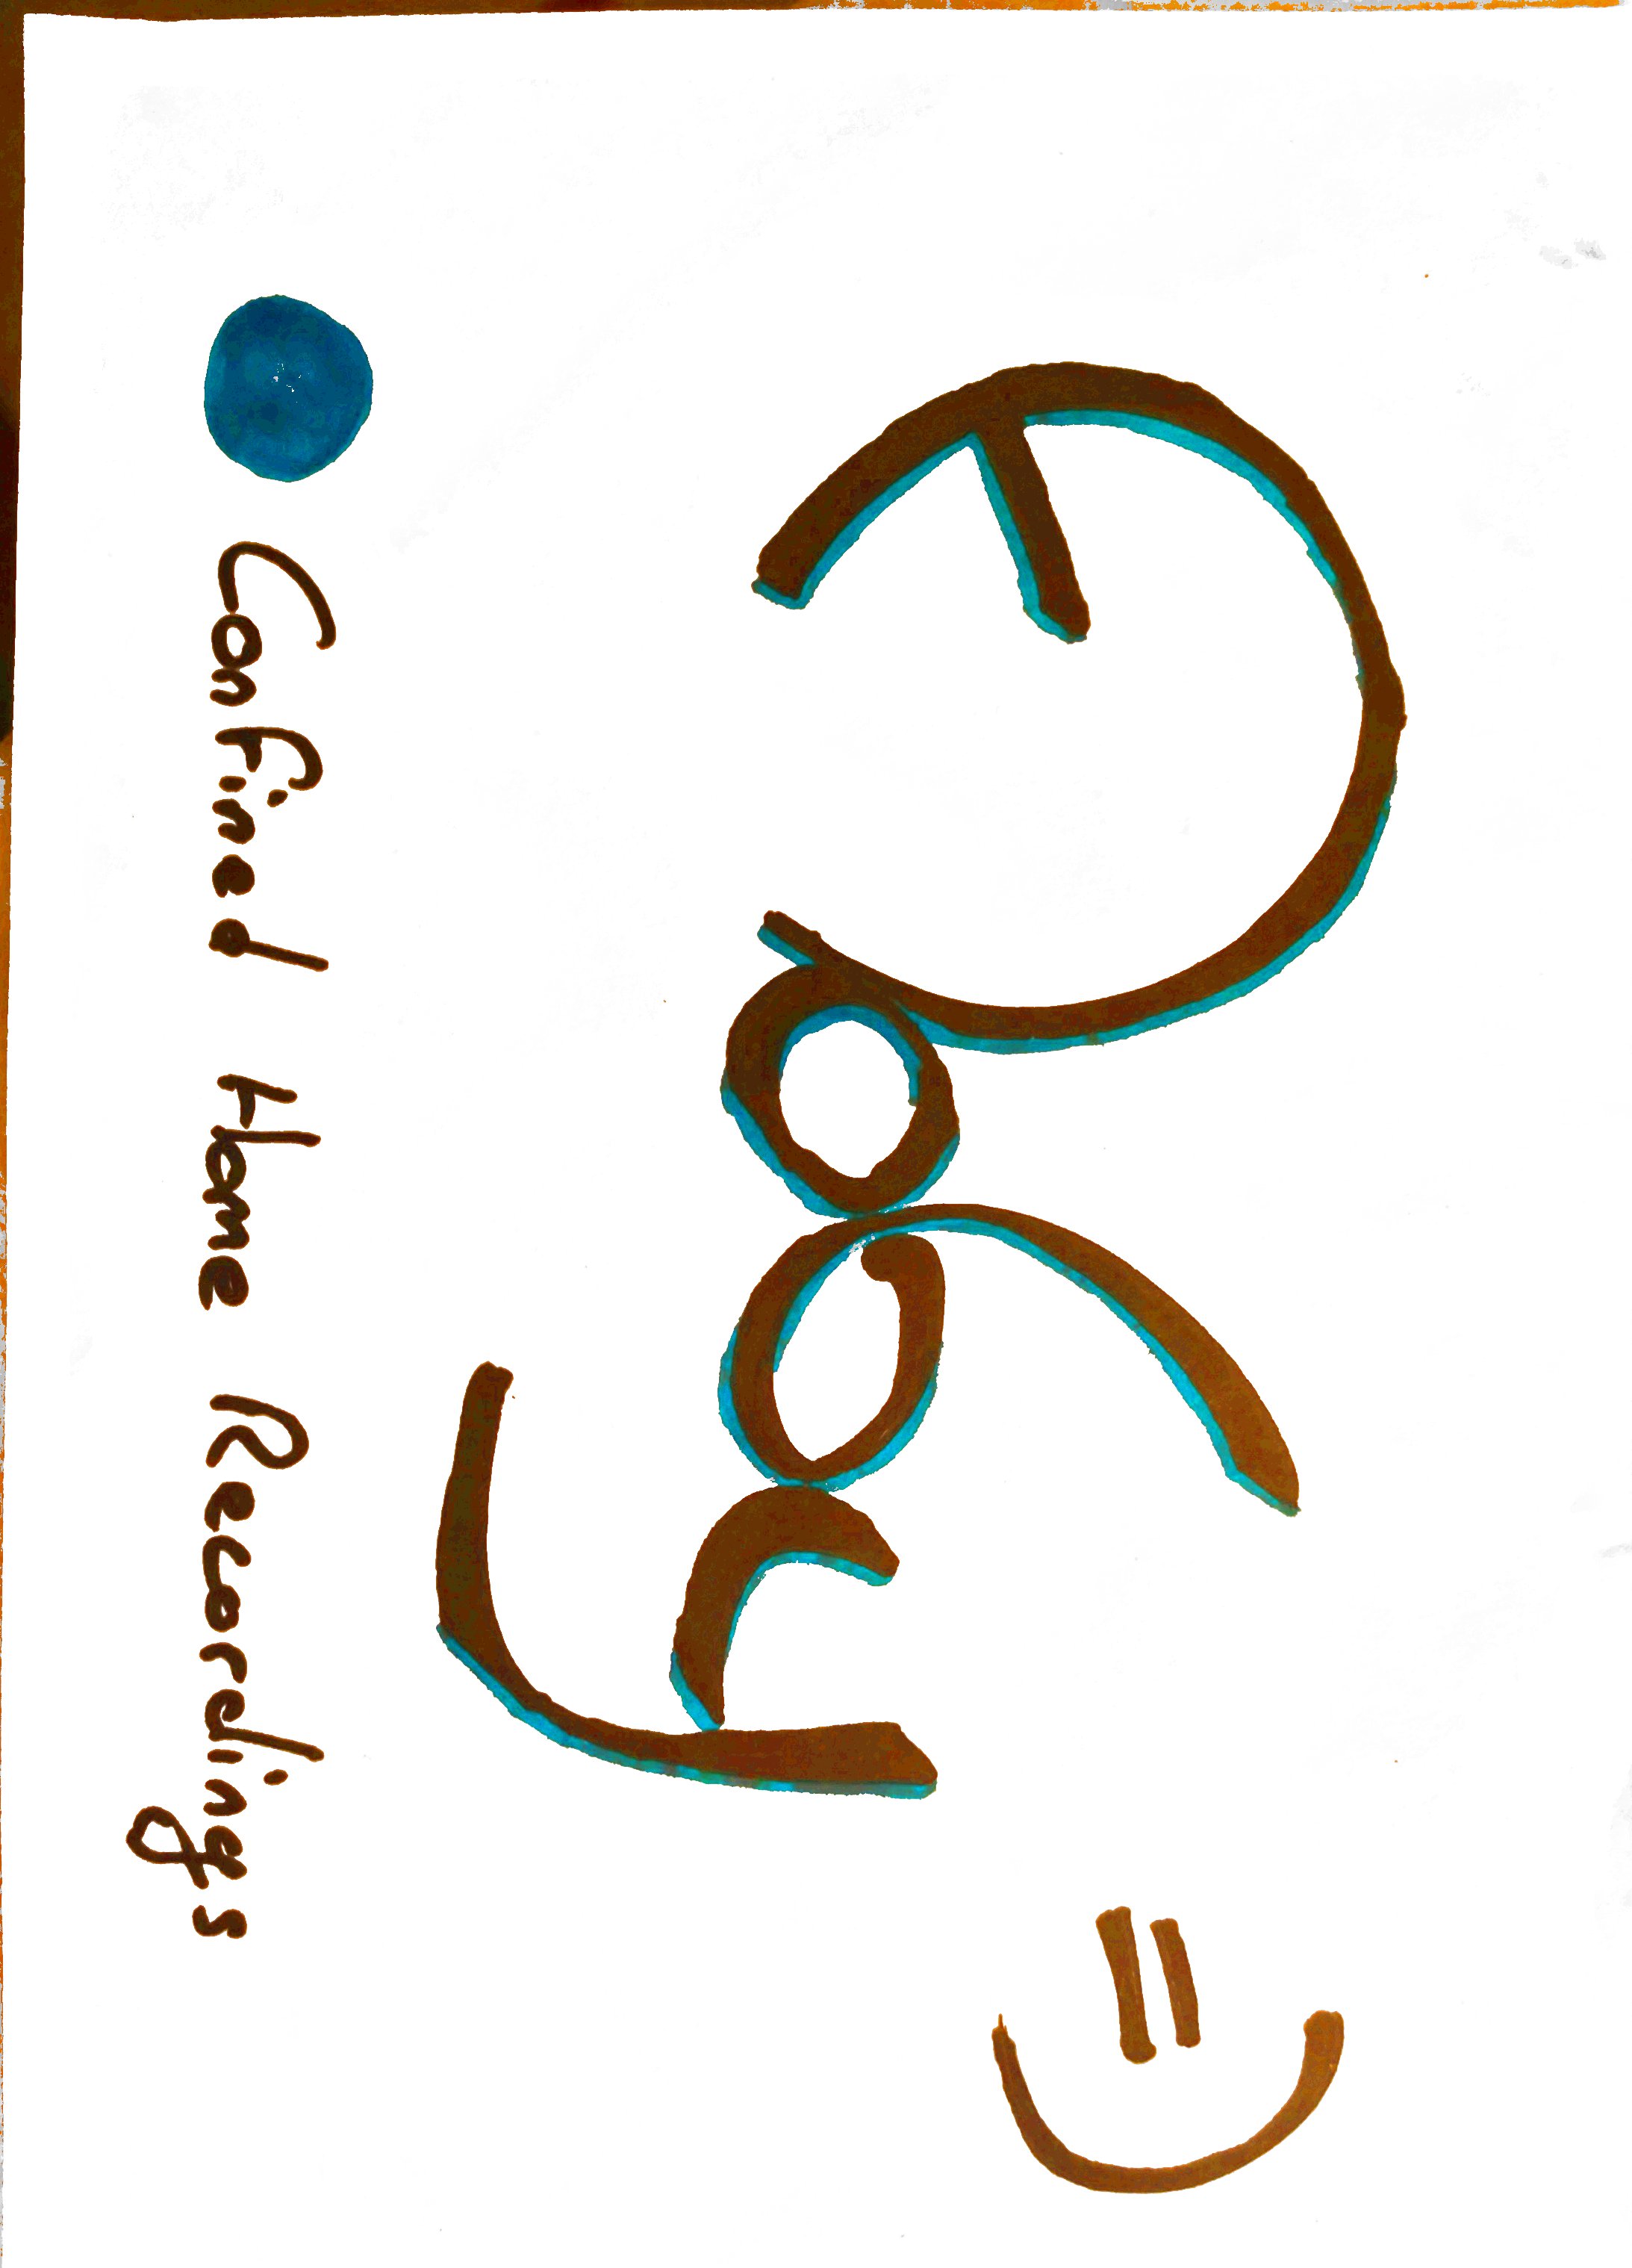 Aoby =)
Confined Home Recordings